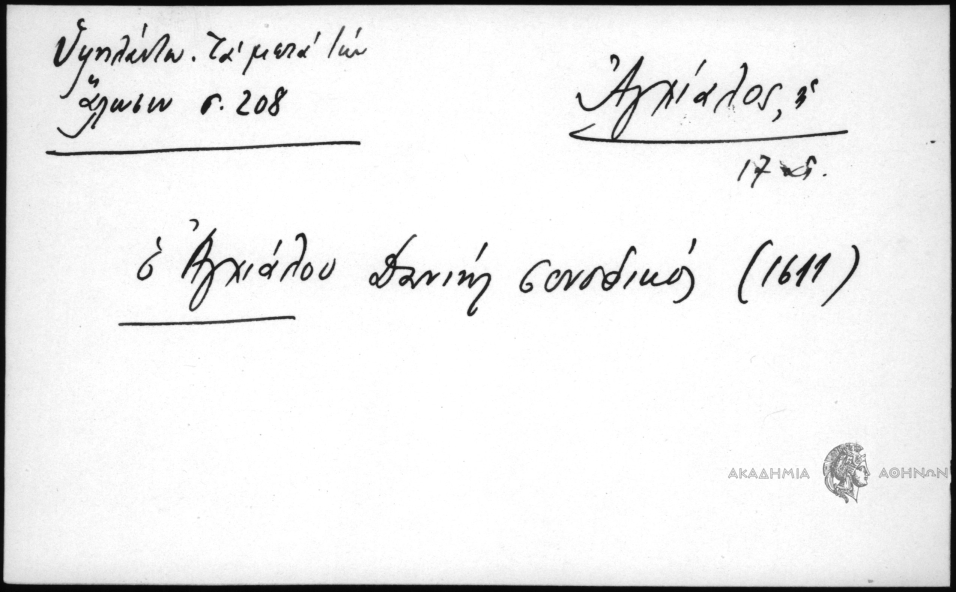 Ὑψηλάντου. Τά μετά τήν
ἅλωσιν σ. 208
Ἀγχίαλος, ἡ
17
ὁ Ἀγχιάλου Δανιήλ συνοδικός (1611)
ΑΚΑΔΗΜΙΑ ΑΘΗΝΩΝ